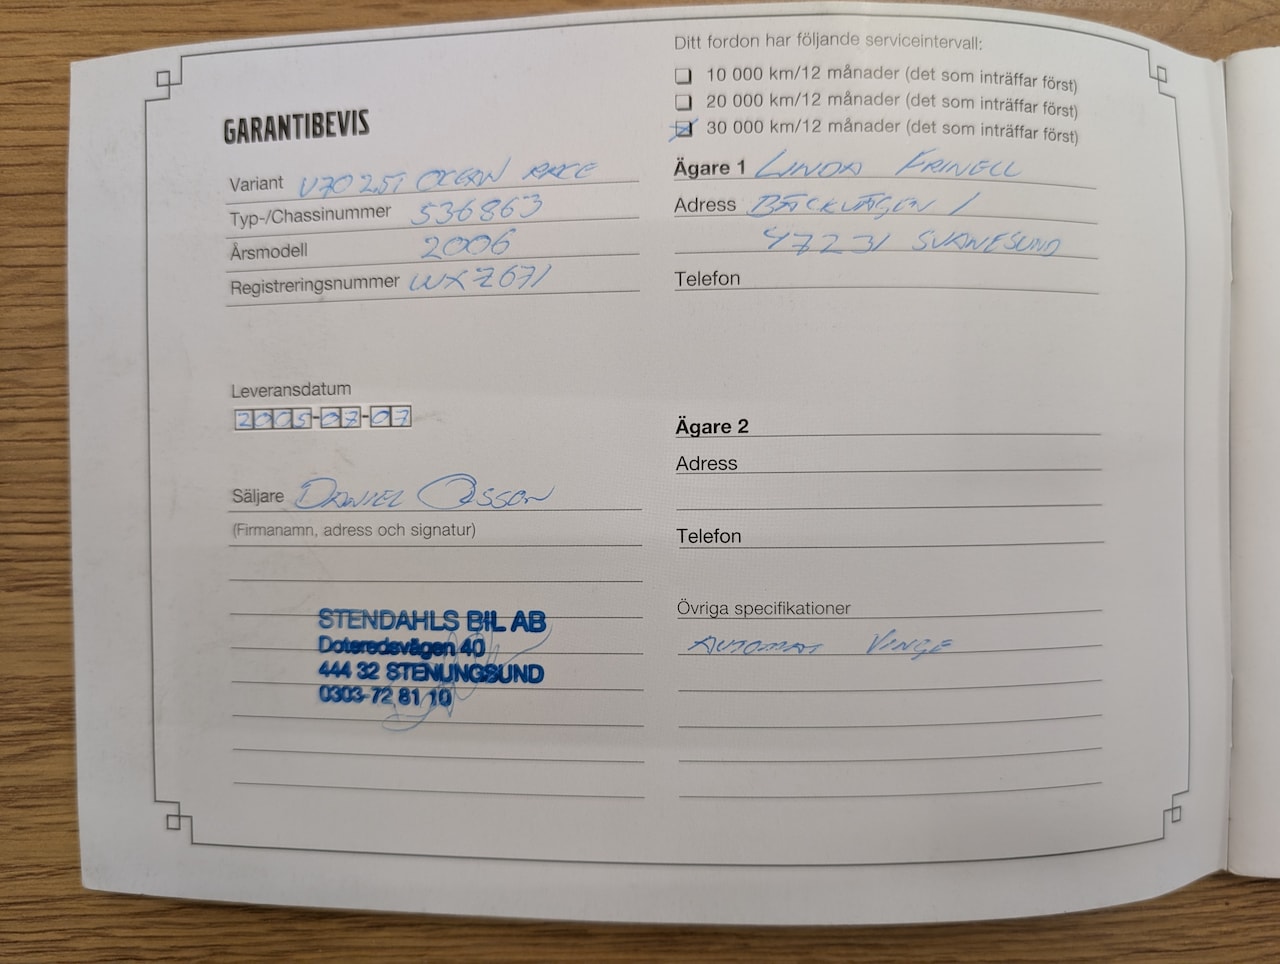 GARANTIBEVIS
Variant V70 2.5T OCEAN RACE
Typ-/Chassinummer 536863
Årsmodell 2006
Registreringsnummer WXZ671
Leveransdatum
2005-07-07
Säljare DANIEL OLSSON
(Firmanamn, adress och signatur)
STENDAHLS BIL AB
Doteredsvägen 40
444 32 STENUNGSUND
0303-72 81 10
Ditt fordon har följande serviceintervall:
10 000 km/12 månader (det som inträffar först)
20 000 km/12 månader (det som inträffar först)
30 000 km/12 månader (det som inträffar först)
Ägare 1 LINDA FRINELL
Adress BÄCKVÄGEN 1
47231 SVANESUND
Telefon
Ägare 2
Adress
Telefon
Övriga specifikationer
AUTOMAT VINGE